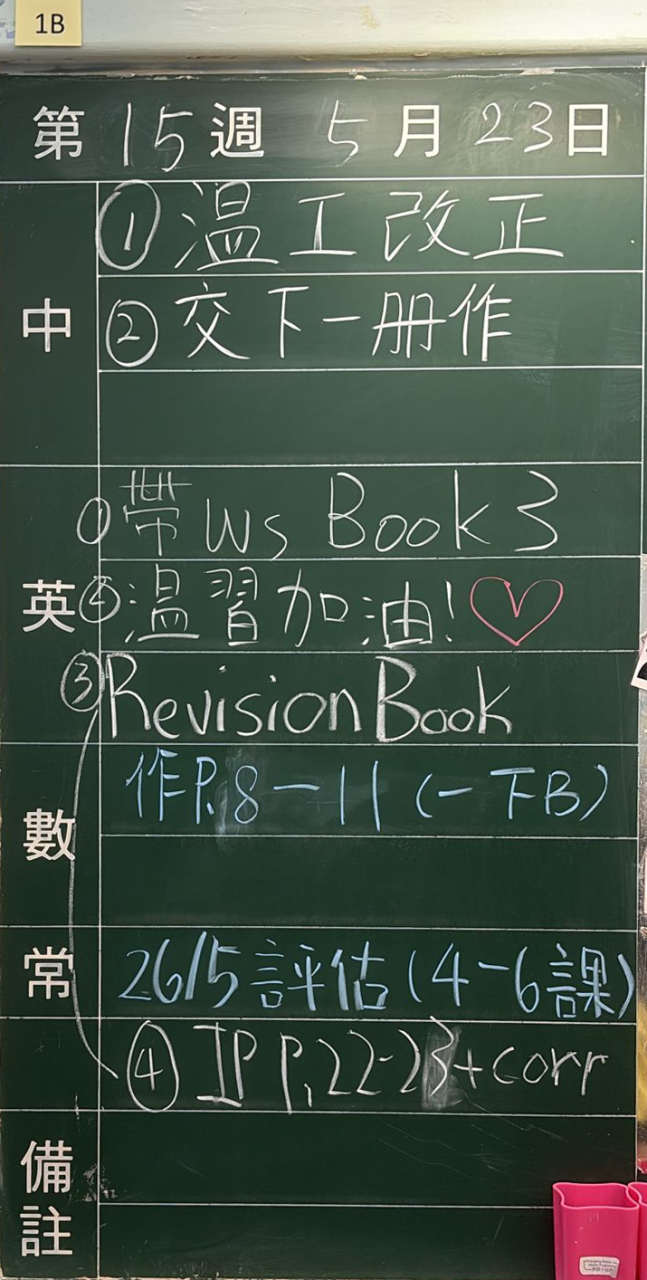 1B
第 15 週 5 月 23 日
中
① 温工改正
② 交下一册作
英
① 帶 Ws Book 3
② 温習加油!
③ Revision Book
數
作P.8-11 (一下B)
常
26/5 評估 (4-6課)
④ IP P.22-23+corr
備註